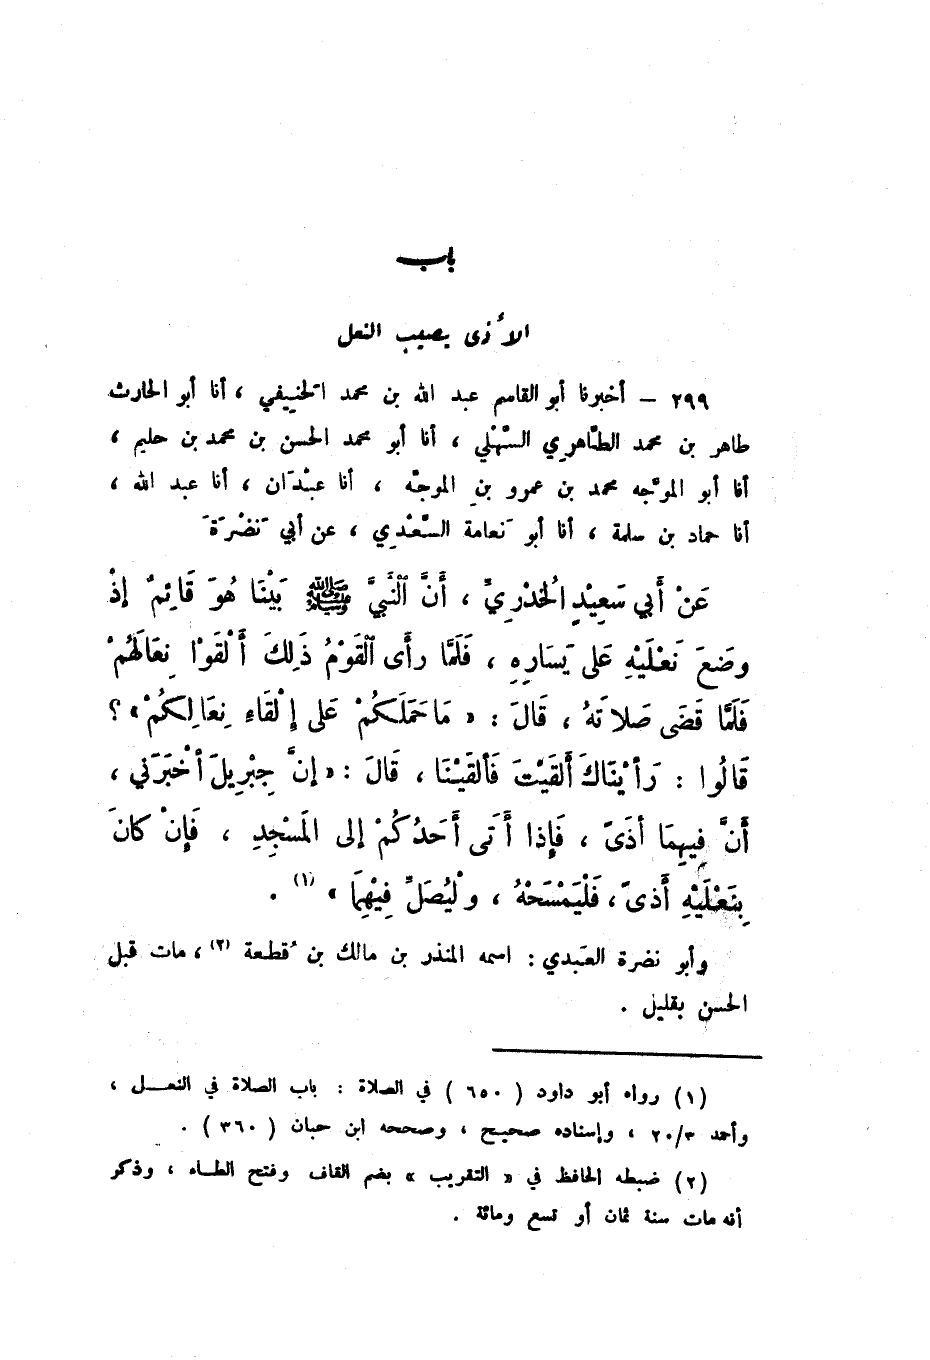 باب
الأذى يصيب النعل
٢٩٩ – أخبرنا أبو القاسم عبد الله بن محمد الحنيفي ، أنا أبو الحارث
طاهر بن محمد الطّاهري السّهْلي ، أنا أبو محمد الحسن بن محمد بن حليم ،
أنا أبو الموجّه محمد بن عمرو بن الموجّه ، أنا عبْدَان ، أنا عبد الله ،
أنا حماد بن سلمة ، أنا أبو نَعامة السّعْدي ، عن أبي نَضْرَةَ
عَنْ أَبي سَعِيْدٍ الْخُدْرِيِّ ، أَنَّ النَّبيَّ ﷺ بَيْنَا هُوَ قَائِمٌ إذْ
وضَعَ نَعْلَيْهِ عَلى يَسَارِهِ ، فَلَمَّا رأى الْقَوْمُ ذَلِكَ أَلْقَوْا نِعَالَهُمْ
فَلَمَّا قَضَى صَلاتَهُ ، قَالَ : « مَا حَمَلَكُمْ عَلى إِلْقَاءِ نِعَالِكُمْ » ؟
قَالُوا : رَأيْنَاكَ أَلقَيْتَ فَألقَيْنَا ، قَالَ : « إنَّ جِبْرِيلَ أخْبَرَني ،
أنَّ فِيهِمَا أذَىً ، فَإِذا أَتَى أَحَدُكُمْ إلى المَسْجِدِ ، فَإِنْ كانَ
بِنَعْلَيْهِ أَذىً ، فَلْيَمْسَحْهُ ، ولْيُصَلِّ فِيْهِمَا » (١) .
وأبو نضرة العَبدي : اسمه المنذر بن مالك بن قُطعة (٢) ، مات قبل
الحسن بقليل .
(١) رواه أبو داود ( ٦٥٠ ) في الصلاة : باب الصلاة في النعل ،
وأحمد ٢٠/٣ ، وإسناده صحيح ، وصححه ابن حبان ( ٣٦٠ ) .
(٢) ضبطه الحافظ في « التقريب » بضم القاف وفتح الطاء ، وذكر
أنه مات سنة ثمان أو تسع ومائة .